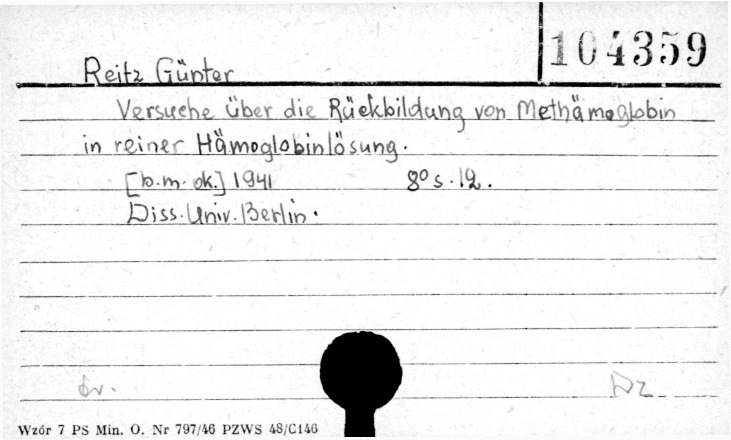 104359
Reitz Günter
Versuche über die Rückbildung von Methämoglobin
in reiner Hämoglobinlösung.
[b.m. ok.] 1941 8° s. 12.
Diss. Univ. Berlin.
Wzór 7 PS Min. O. Nr 797/46 PZWS 48/C146